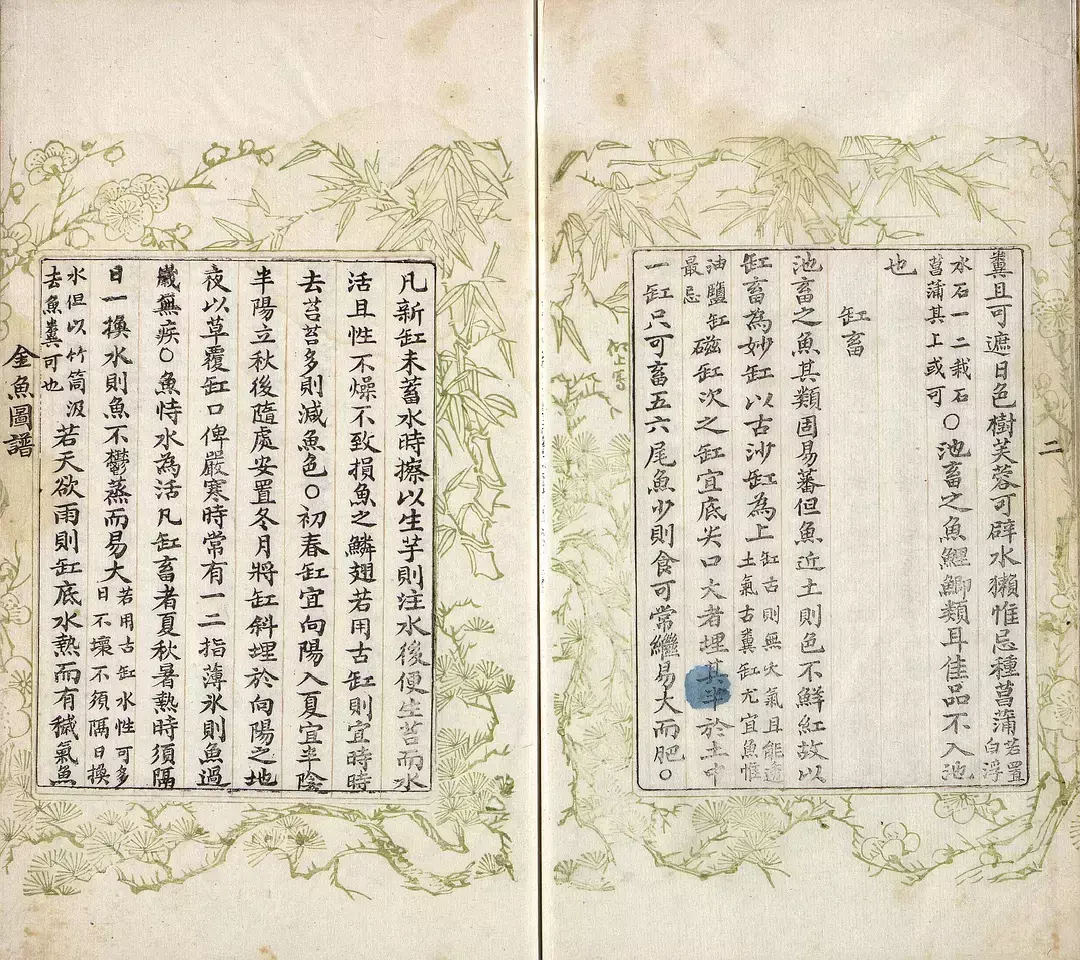 二
糞且可遮日色樹芙蓉可辟水獺惟忌種菖蒲若置白浮
水石一二栽石菖蒲其上或可○池畜之魚鯉鯽類耳佳品不入池
也
缸畜
池畜之魚其類固易蕃但魚近土則色不鮮紅故以
缸畜為妙缸以古沙缸為上缸古則無火氣且能適土氣古糞缸尤宜魚惟
油鹽缸最忌磁缸次之缸宜底尖口大者埋其半於土中
一缸只可畜五六尾魚少則食可常繼易大而肥○
凡新缸未蓄水時擦以生芋則注水後便生苔而水
活且性不燥不致損魚之鱗翅若用古缸則宜時時
去苔苔多則減魚色○初春缸宜向陽入夏宜半陰
半陽立秋後隨處安置冬月將缸斜埋於向陽之地
夜以草覆缸口俾嚴寒時常有一二指薄氷則魚過
歲無疾○魚恃水為活凡缸畜者夏秋暑熱時須隔
日一換水則魚不鬱蒸而易大若用古缸水性可多日不壞不須隔日換
水但以竹筒汲去魚糞可也若天欲雨則缸底水熱而有穢氣魚
金魚圖譜